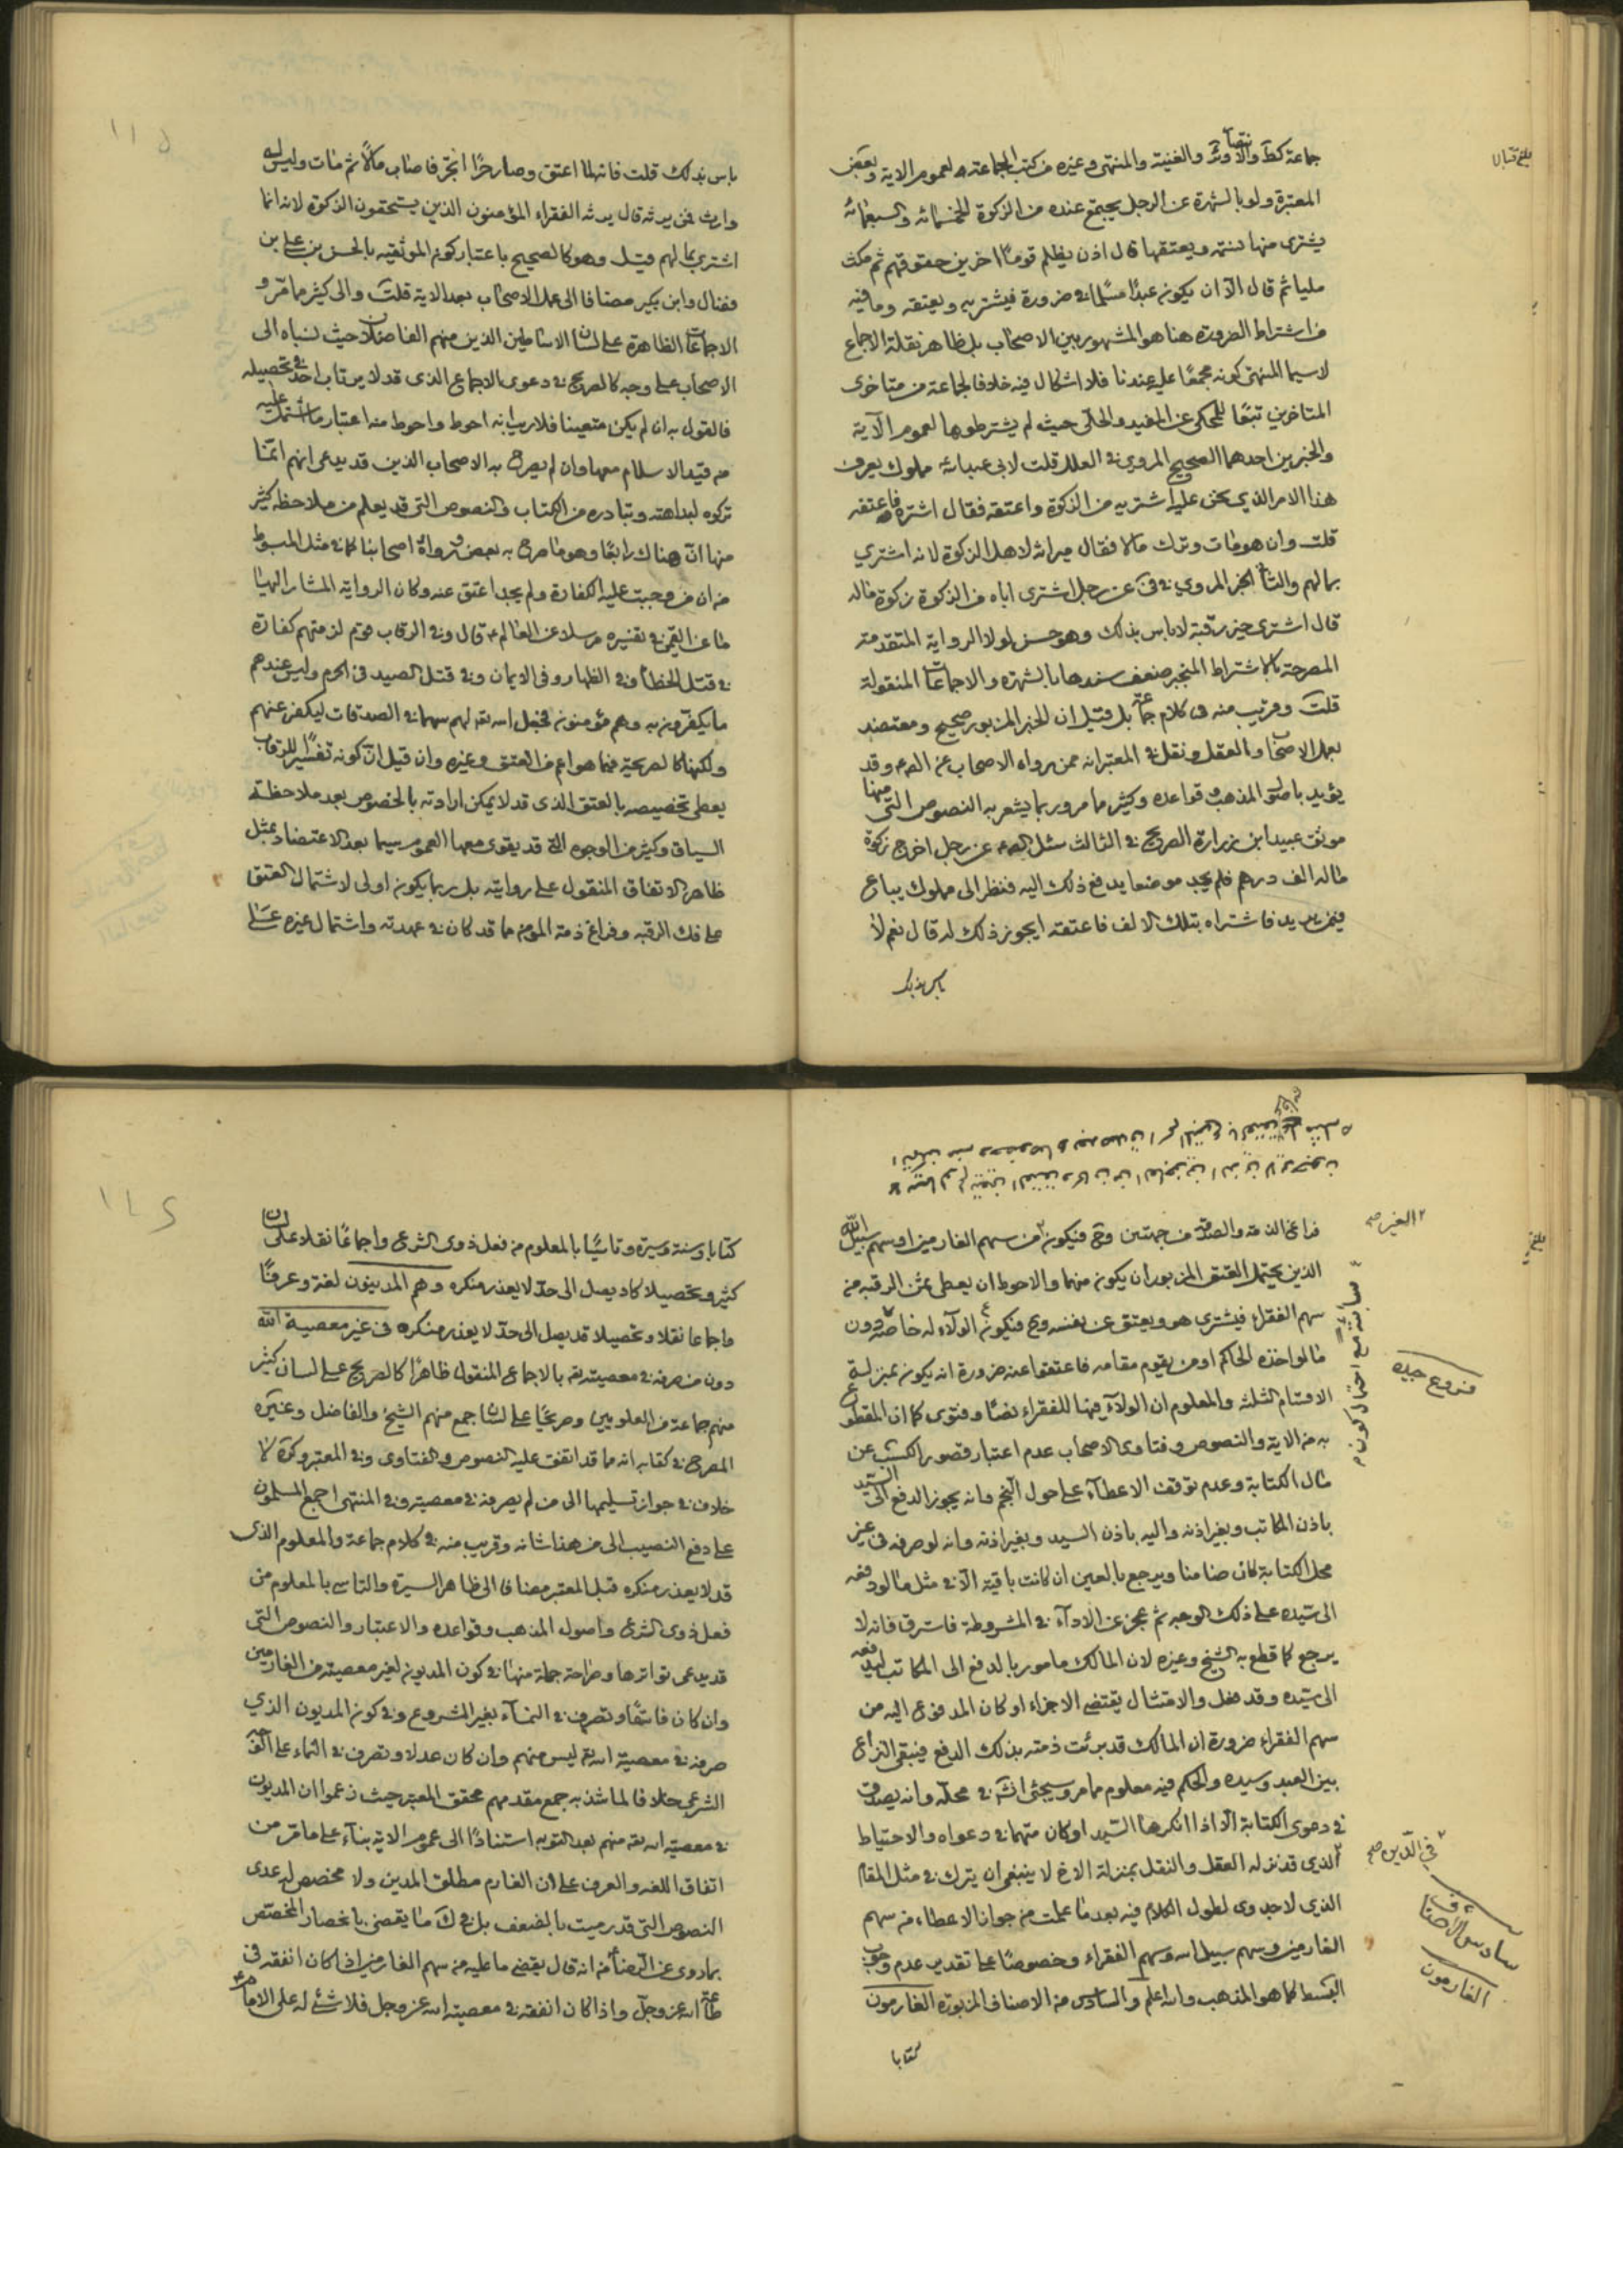 جماعة كط والاوثر والغنية والمنتهى وغيره من كتب الجماعة لعموم الاية وبعض
المعتبرة ولو بالشهرة عن الرجل يجتمع عنده من الزكوة الخمسمائه والسبعمائه
يشترى منها نسمة ويعتقها قال اذن يظلم قومًا اخرين حقوقهم ثم مكث
مليا ثم قال الا ان يكون عبدًا مسلما في ضرورة فيشتريه ويعتقه وما فيه
من اشتراط الضرورة هنا هو المشهور بين الاصحاب بل ظاهر نقلة الاجماع
لاسيما المنتهى كونه مجمعًا عليه عندنا فلا اشكال فيه خلافا لجماعة من متاخرى
المتاخرين تبعًا للمحكى عن المفيد والحلى حيث لم يشترطوها لعموم الآية
والخبرين احدهما الصحيح المروي في العلل قلت لابي عبدالله مملوك يعرف
هذا الامر الذي نحن عليه اشتريه من الزكوة واعتقه فقال اشتره فاعتقه
قلت وان هو مات وترك مالا فقال ميراثه لاهل الزكوة لانه اشترى
بمالهم والثاني الخبر المروي في في عن رجل اشترى اباه من الزكوة زكوة ماله
قال اشترى خير رقبة لا باس بذلك وهو حسن لولا الرواية المتقدمة
المصرحة بالاشتراط المنجبر ضعف سندها بالشهرة والاجماعات المنقولة
قلت وقريب منه في كلام جماعة بل قيل ان الخبر المزبور صحيح ومعتضد
بعمل الاصحاب والعقل ونقل في المعتبر انه ممن رواه الاصحاب عن وقد
يؤيد باصول المذهب وقواعده وكثير ما مر وربما يشعر به النصوص التى منها
موثق عبيد ابن زرارة الصريح في الثالث سئل عن رجل اخرج زكوة
ماله الف درهم فلم يجد موضعا يدفع ذلك اليه فنظر الى مملوك يباع
فيمن يزيد فاشتراه بتلك الالف فاعتقه ايجوز ذلك له قال نعم لا
باس بذلك
باس بذلك قلت فانه لما اعتق وصار حرًا اتجر فاصاب مالًا ثم مات وليس له
وارث فمن يرثه قال يرثه الفقراء المؤمنون الذين يستحقون الزكوة لانه انما
اشترى بمالهم قيل وهو كالصحيح باعتبار كون الموثقيه بالحسن بن علي بن
فضال وابن بكير مضافا الى عمل الاصحاب بعد الاية قلت والى كثير ما مر و
الاجماعات الظاهرة على لسان الاساطين الذين منهم الفاضلان حيث نسباه الى
الاصحاب على وجه كالصريح في دعوى الاجماع الذى قد لا يرتاب احد في تحصيله
فالقول به ان لم يكن متعينا فلا ريب انه احوط واحوط منه اعتبار ما اشتملت عليه
من قيد الاسلام معها وان لم يصرح به الاصحاب الذين قد يدعى انهم انما
تركوه لبداهته وتبادره من الكتاب والنصوص التى قد يعلم من ملاحظة كثير
منها ان هناك رابعًا وهو ما صرح به بعض ورواه اصحابنا كما في مثل المبسوط
من ان من وجبت عليه الكفارة ولم يجد اعتق عنه وكان الرواية المشار اليها
ما عن القمي في تفسيره مرسلا عن العالم قال وفي الرقاب قوم لزمتهم كفارة
في قتل الخطا وفي الظهار وفي الايمان وفي قتل الصيد في الحرم وليس عندهم
ما يكفرون به وهم مؤمنون فجعل الله تعه لهم سهما في الصدقات ليكفر عنهم
ولكنها كالصريحة فيما هو اعم من العتق وغيره وان قيل ان كونه تفسيرًا للرقاب
يعطى تخصيصه بالعتق الذى قد لا يمكن ارادته بالخصوص بعد ملاحظة
السياق وكثير من الوجوه التى قد يقوى معها العموم سيما بعد الاعتضاد بمثل
ظاهر الاتفاق المنقول على روايته بل ربما يكون اولى لاشتمال العتق
على فك الرقبه وفراغ ذمة المؤمن مما قد كان في عهدته واشتمال غيره على
فراغ الذمة والصدقة من جهتين وح فيكون من سهم الغارمين او سهم سبيل الله
الغير صح
الذين يحتمل العتق المزبور ان يكون منهما والاحوط ان يعطى ثمن الرقبه من
سهم الفقراء فيشترى هو ويعتق عن نفسه وح فيكون الولاء له خاصة دون
ما لو اخذه الحاكم او من يقوم مقامه فاعتقها عنه ضرورة انه يكون بمنزلة
فروع جيده
الاقسام الثلثة والمعلوم ان الولاء فيها للفقراء نصًا وفتوى كما ان المقطوع
به من الاية والنصوص وفتاوى الاصحاب عدم اعتبار قصور الكسب عن
مال الكتابة وعدم توقف الاعطاء على حول النجم وانه يجوز الدفع الى السيد
باذن المكاتب وبغير اذنه واليه باذن السيد وبغير اذنه وانه لو صرفه في غير
محل الكتابة كان ضامنا ويرجع بالعين ان كانت باقية الا في مثل ما لو دفعه
الى سيده على ذلك الوجه ثم عجز عن الاداء في المشروطة فاسترق فانه لا
يرجع كما قطع به الشيخ وغيره لان المالك مامور بالدفع الى المكاتب ليدفعه
الى سيده وقد فعل والامتثال يقتضى الاجزاء او كان المدفوع اليه من
سهم الفقراء ضرورة ان المالك قد برئت ذمته بذلك الدفع فيبقى النزاع
بين العبد وسيده والحكم فيه معلوم مما مر وسيجئ في محله وانه يصدق
في دعوى الكتابة الا اذا انكرها السيد او كان متهما في دعواه والاحتياط
في الدين صح
الذى قد نزله العقل والنقل بمنزلة الاخ لا ينبغى ان يترك في مثل المقام
الذى لا جدوى لطول الكلام فيه بعد ما علمت من جواز الاعطاء من سهم
سادس الاصناف
الغارمون
الغارمين وسهم سبيل الله وسهم الفقراء وخصوصًا على تقدير عدم وجوب
البسط كما هو المذهب والله اعلم والسادس من الاصناف المزبورة الغارمون
كتابا
كتابا وسنة وسيرة وتاسيًا بالمعلوم من فعل ذوى الشرع واجماعًا نقلا على لسان
كثير وتحصيلا كاد يصل الى حد لا يعذر منكره وهم المدينون لغة وعرفًا
واجماعا نقلا وتحصيلا قد يصل الى حد لا يعذر منكره في غير معصية الله
دون من صرفه في معصيته تعه بالاجماع المنقول ظاهرًا كالصريح على لسان كثير
منهم جماعة من العلويين وصريحًا على لسان جمع منهم الشيخ والفاضل وغيره
المصرح في كتابه انه مما قد اتفق عليه النصوص والفتاوى وفي المعتبر وكرة لا
خلاف في جواز تسليمها الى من لم يصرفه في معصية وفي المنتهى اجمع المسلمون
على دفع النصيب الى من هذا شانه وقريب منه في كلام جماعة والمعلوم الذى
قد لا يعذر منكره قبل المعتبر مضافا الى ظاهر السيرة والتاسى بالمعلوم من
فعل ذوى الشرع واصول المذهب وقواعده والاعتبار والنصوص التى
قد يدعى تواترها وصراحة جملة منها في كون المديون لغير معصيته من الغارمين
وان كان فاسقًا وتصرف في النماء بغير المشروع وفي كون المديون الذي
صرفه في معصية الله تعه ليس منهم وان كان عدلا وتصرف في النماء على الوجه
الشرعى خلافا لما شذ به جمع مقدمهم محقق المعتبر حيث زعموا ان المديون
في معصية الله تعه منهم بعد التوبه استنادًا الى عموم الاية بناء على ما مر من
اتفاق اللغه والعرف على ان الغارم مطلق المدين ولا مخصص له عدى
النصوص التى قد رميت بالضعف بل في ك ما يقضى بانحصار المخصص
بما روى عن الرضا انه قال يقضى ما عليه من سهم الغارمين اذا كان انفقه في
طاعة الله عز وجل واذا كان انفقه في معصية الله عز وجل فلا شئ له على الامام